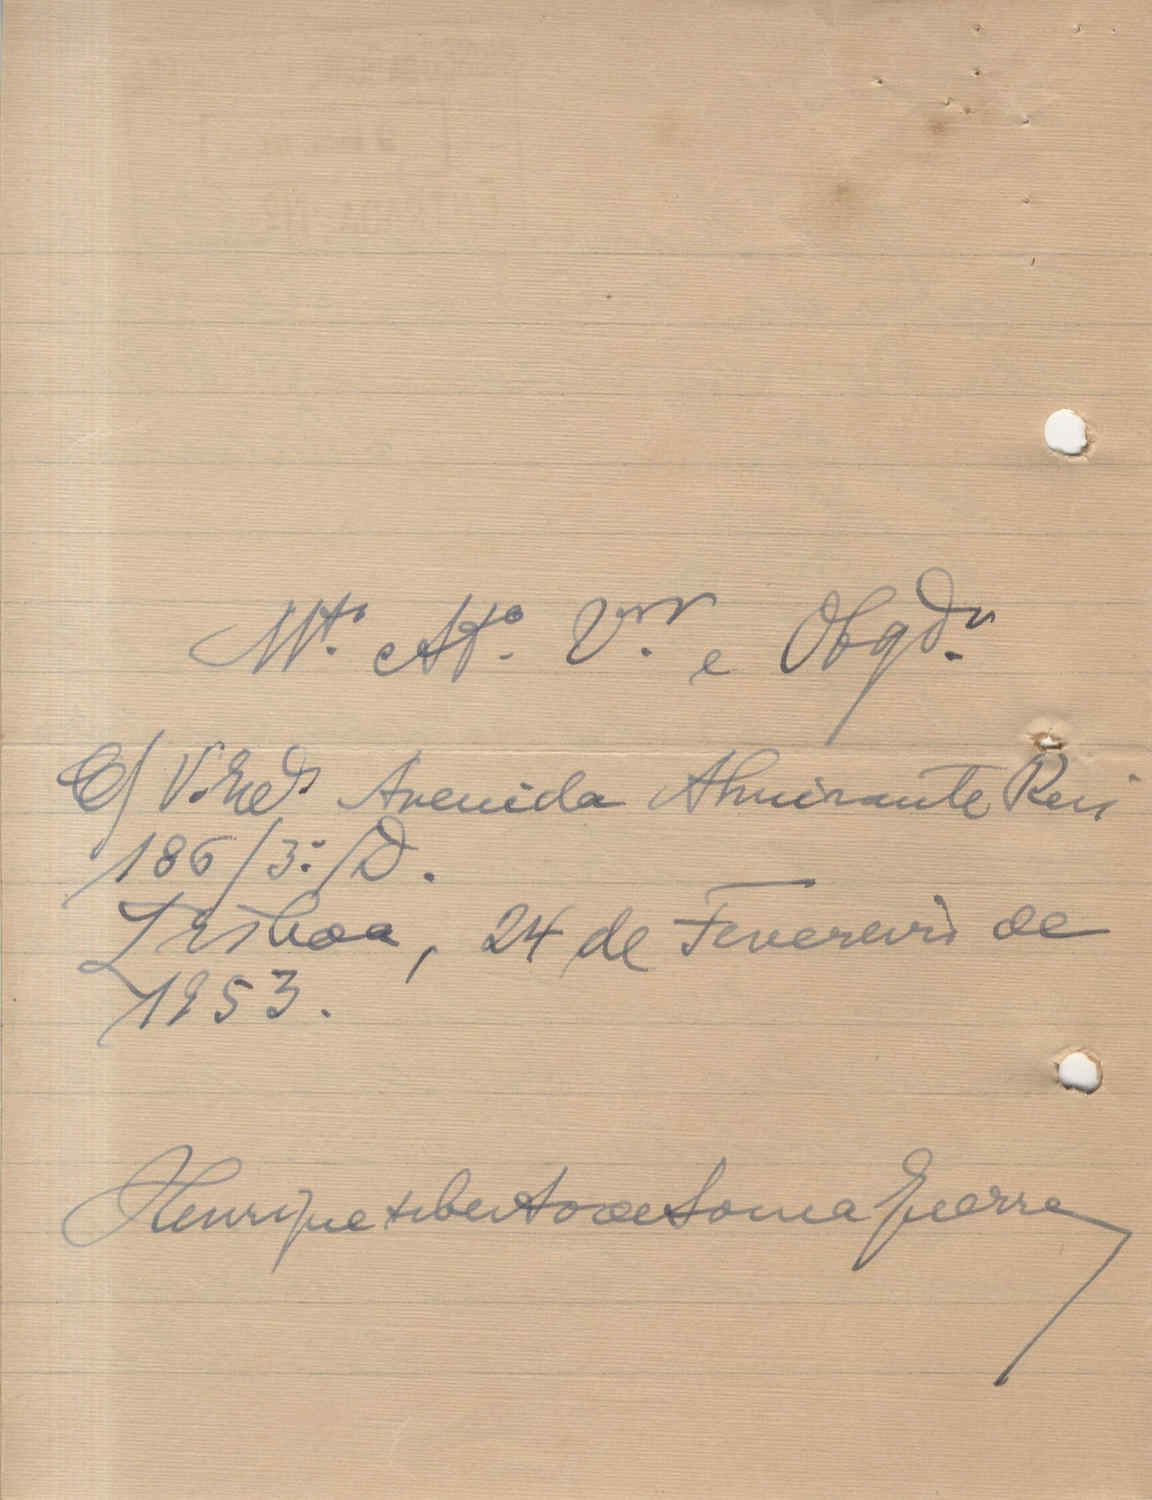 Mto. Atº. Vor. e Obgdº.
C/ V.Exª. Avenida Almirante Reis
186/3º/D.
Lisboa, 24 de Fevereiro de
1953.
Henrique Alberto de Sousa Guerra